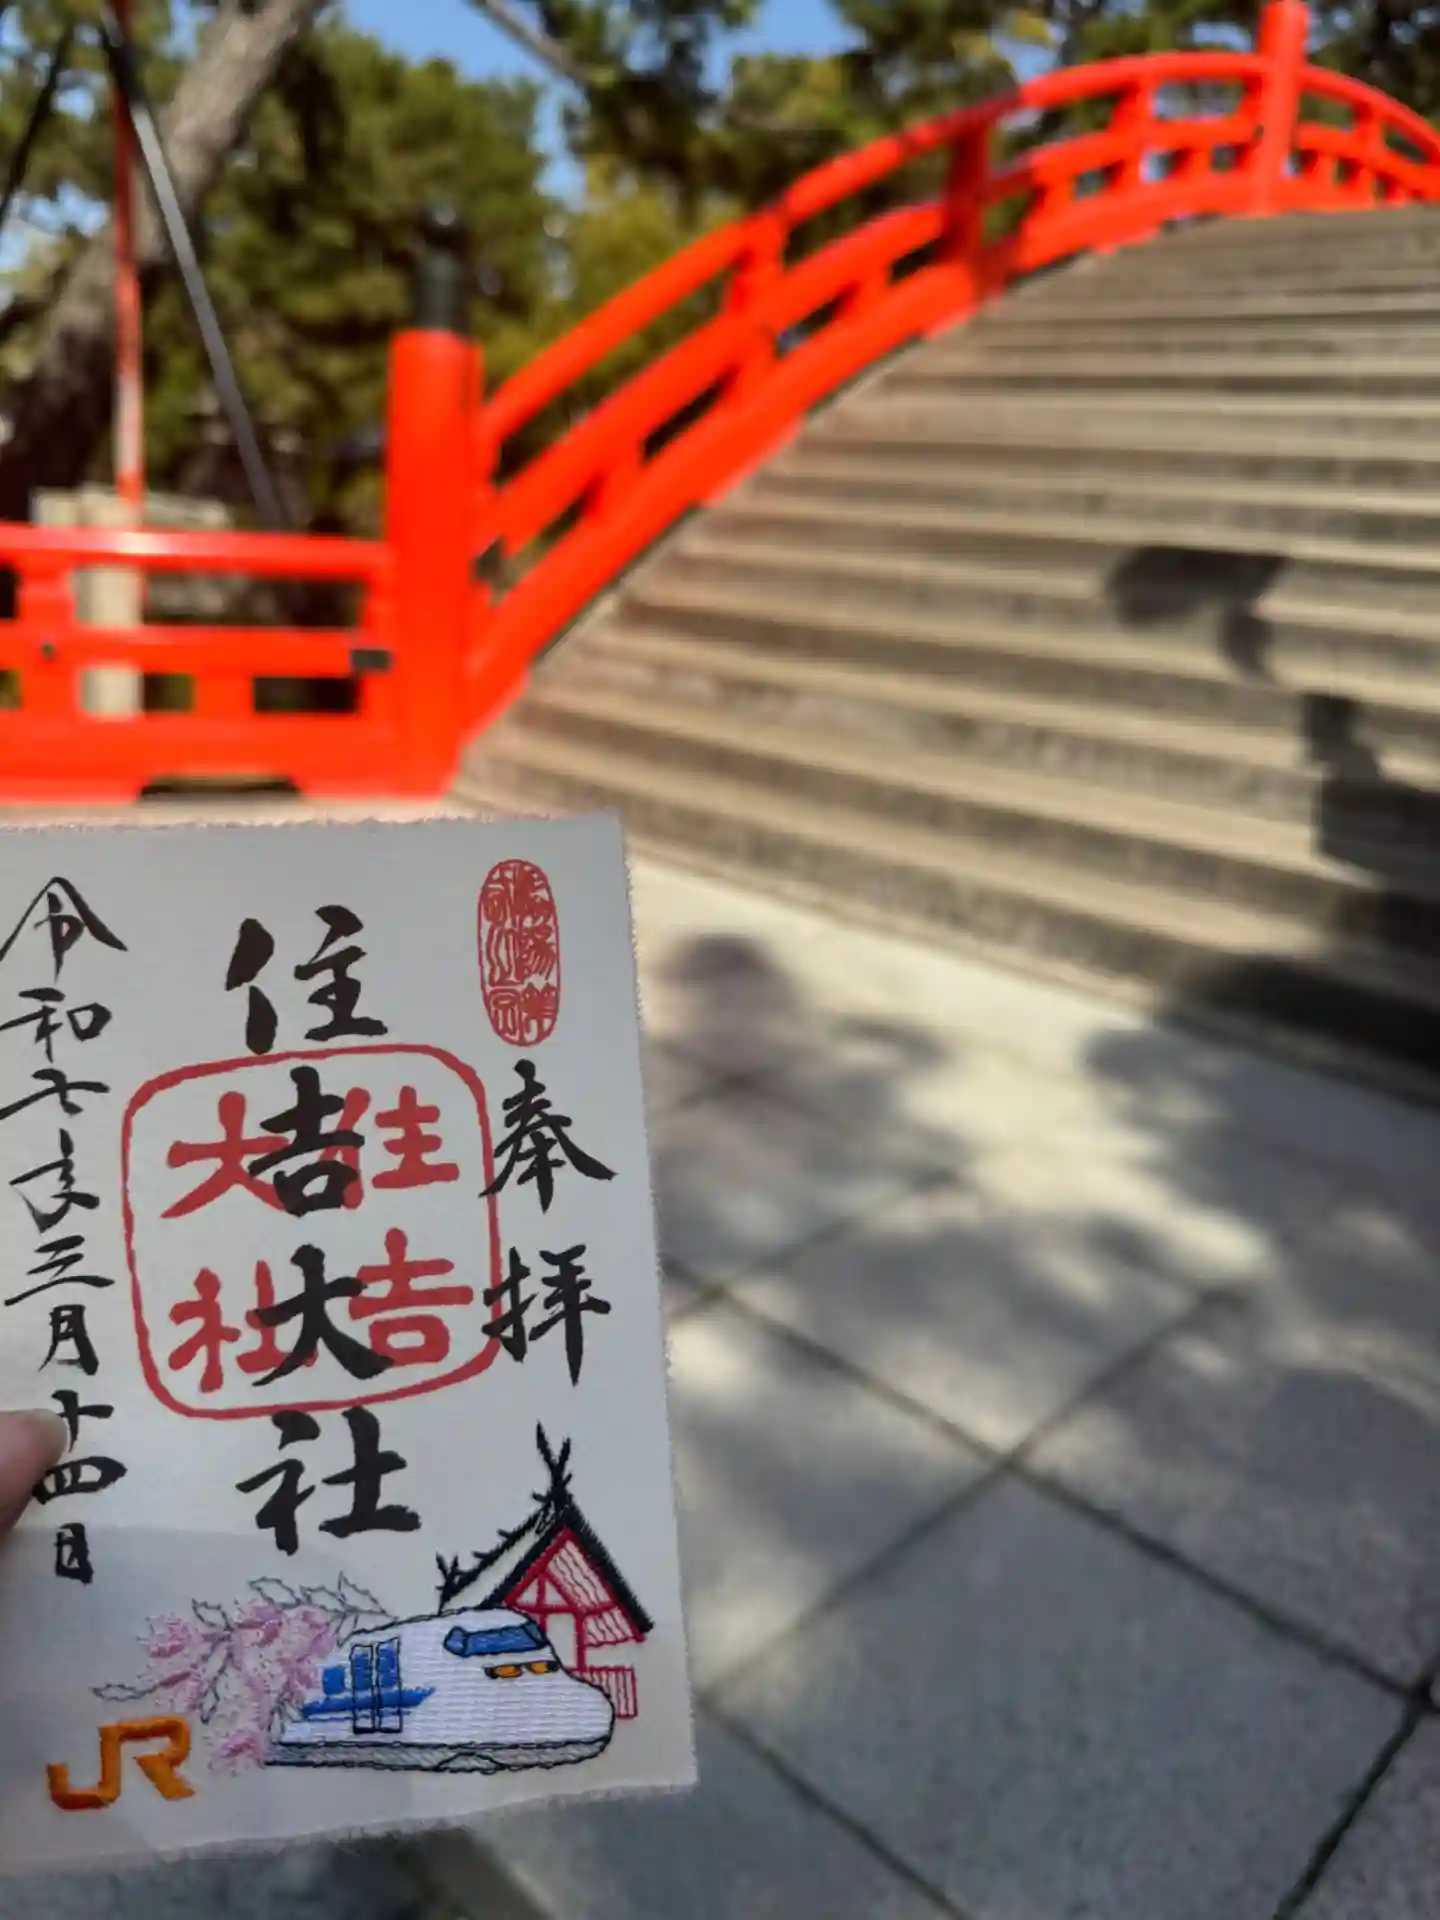 奉拝
住吉大社
住吉
大社
令和七年三月十四日
JR